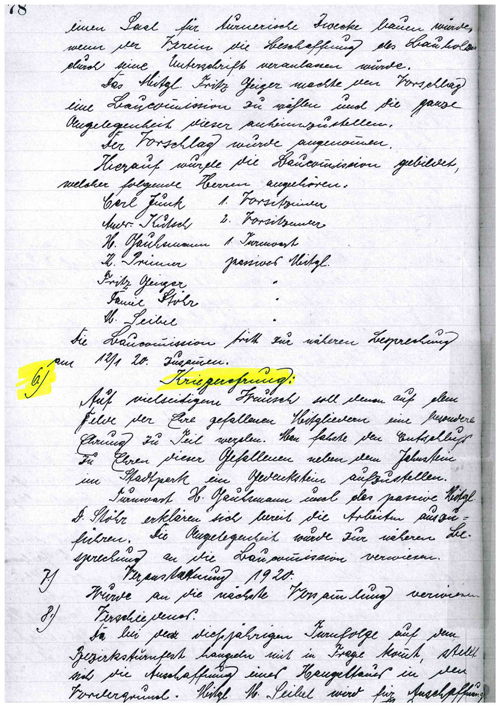 78
einen Saal für turnerische Zwecke bauen würde,
wenn der Verein die Beschaffung des Bauholzes
durch eine Unterschrift veranlassen würde.
Das Mitgl. Fritz Geiger machte den Vorschlag
eine Baucommission zu wählen und die ganze
Angelegenheit dieser anheimzustellen.
Der Vorschlag wurde angenommen.
Hierauf wurde die Baucommission gebildet,
welcher folgende Herren angehören.
Carl Junk 1. Vorsitzender
Andr. Kutsch 2. Vorsitzender
H. 1. Turnwart
K. passives Mitgl.
Fritz Geiger "
Daniel Stöhr "
M. Seibel "
Die Baucommission tritt zur näheren Besprechung
am 12/1 20. zusamen.
6) Kriegerehrung:
Auf vielseitigem Wunsch soll denen auf dem
Felde der Ehre gefallenen Mitgliedern eine besondere
Ehrung zu Teil werden. Man fasste den Entschluss
zu Ehren dieser Gefallenen neben dem Jahnstein
im Stadtpark ein Gedenkstein aufzustellen.
Turnwart H. und das passive Mitgl.
D. Stöhr erklären sich bereit die Arbeiten auszu-
führen. Die Angelegenheit wurde zur näheren Be-
sprechung an die Baucommission verwiesen.
7) Veranstaltung 1920.
Wurde an die nächste Versamlung verwiesen
8.) Verschiedenes.
Da bei der diesjährigen Turnfolge auf dem
Bezirksturnfest hangeln mit in Frage komt, stellt
sich die Anschaffung eines Hangeltaues in den
Vordergrund. Mitgl. M. Seibel wird für Anschaffung